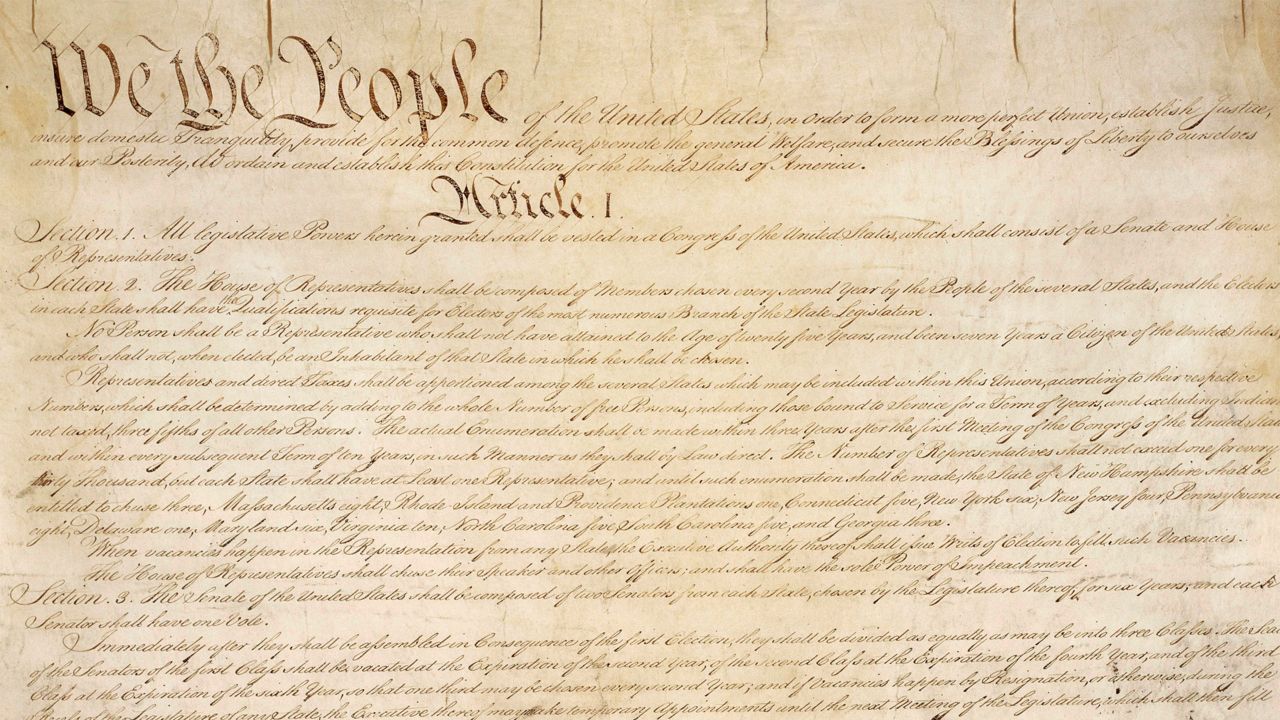 We the People of the United States, in Order to form a more perfect Union, establish Justice,
insure domestic Tranquility, provide for the common defence, promote the general Welfare, and secure the Blessings of Liberty to ourselves
and our Posterity, do ordain and establish this Constitution for the United States of America.
Article. I.
Section. 1. All legislative Powers herein granted shall be vested in a Congress of the United States, which shall consist of a Senate and House
of Representatives.
Section. 2. The House of Representatives shall be composed of Members chosen every second Year by the People of the several States, and the Electors
in each State shall have the Qualifications requisite for Electors of the most numerous Branch of the State Legislature.
No Person shall be a Representative who shall not have attained to the Age of twenty five Years, and been seven Years a Citizen of the United States,
and who shall not, when elected, be an Inhabitant of that State in which he shall be chosen.
Representatives and direct Taxes shall be apportioned among the several States which may be included within this Union, according to their respective
Numbers, which shall be determined by adding to the whole Number of free Persons, including those bound to Service for a Term of Years, and excluding Indians
not taxed, three fifths of all other Persons. The actual Enumeration shall be made within three Years after the first Meeting of the Congress of the United States,
and within every subsequent Term of ten Years, in such Manner as they shall by Law direct. The Number of Representatives shall not exceed one for every
thirty Thousand, but each State shall have at Least one Representative; and until such enumeration shall be made, the State of New Hampshire shall be
entitled to chuse three, Massachusetts eight, Rhode-Island and Providence Plantations one, Connecticut five, New-York six, New Jersey four, Pennsylvania
eight, Delaware one, Maryland six, Virginia ten, North Carolina five, South Carolina five, and Georgia three.
When vacancies happen in the Representation from any State, the Executive Authority thereof shall issue Writs of Election to fill such Vacancies.
The House of Representatives shall chuse their Speaker and other Officers; and shall have the sole Power of Impeachment.
Section. 3. The Senate of the United States shall be composed of two Senators from each State, chosen by the Legislature thereof, for six Years; and each
Senator shall have one Vote.
Immediately after they shall be assembled in Consequence of the first Election, they shall be divided as equally as may be into three Classes. The Seats
of the Senators of the first Class shall be vacated at the Expiration of the second Year, of the second Class at the Expiration of the fourth Year, and of the third
Class at the Expiration of the sixth Year, so that one third may be chosen every second Year; and if Vacancies happen by Resignation, or otherwise, during the
Recess of the Legislature of any State, the Executive thereof may make temporary Appointments until the next Meeting of the Legislature, which shall then fill